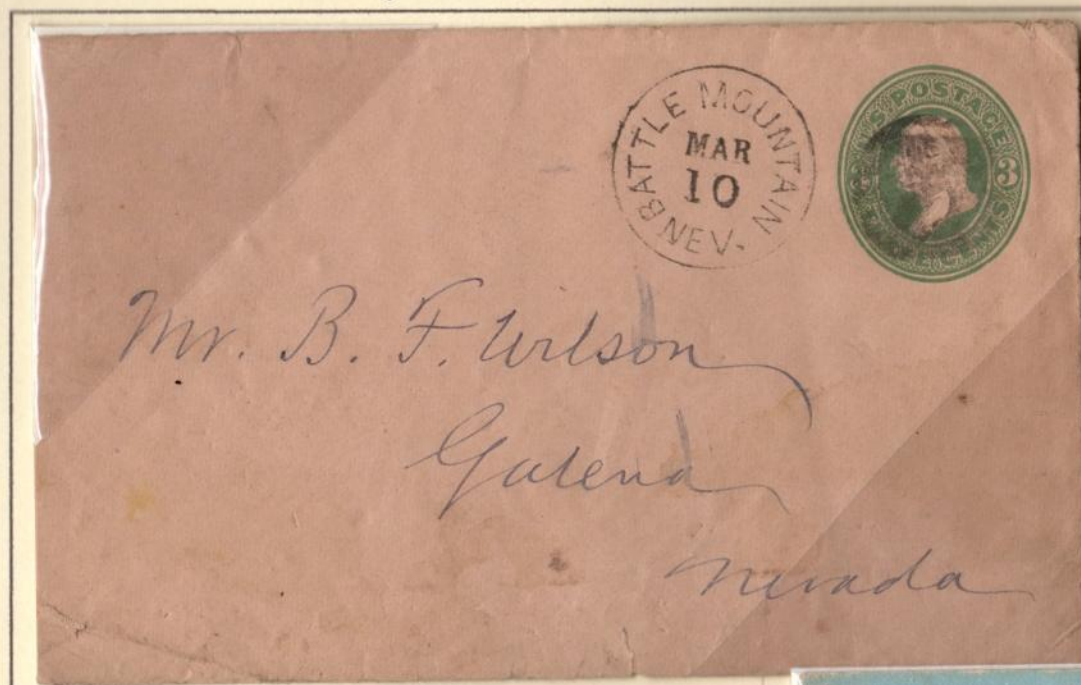 BATTLE MOUNTAIN
MAR
10
NEV.
U.S. POSTAGE
3
Mr. B. F. Wilson
Galena
Nevada